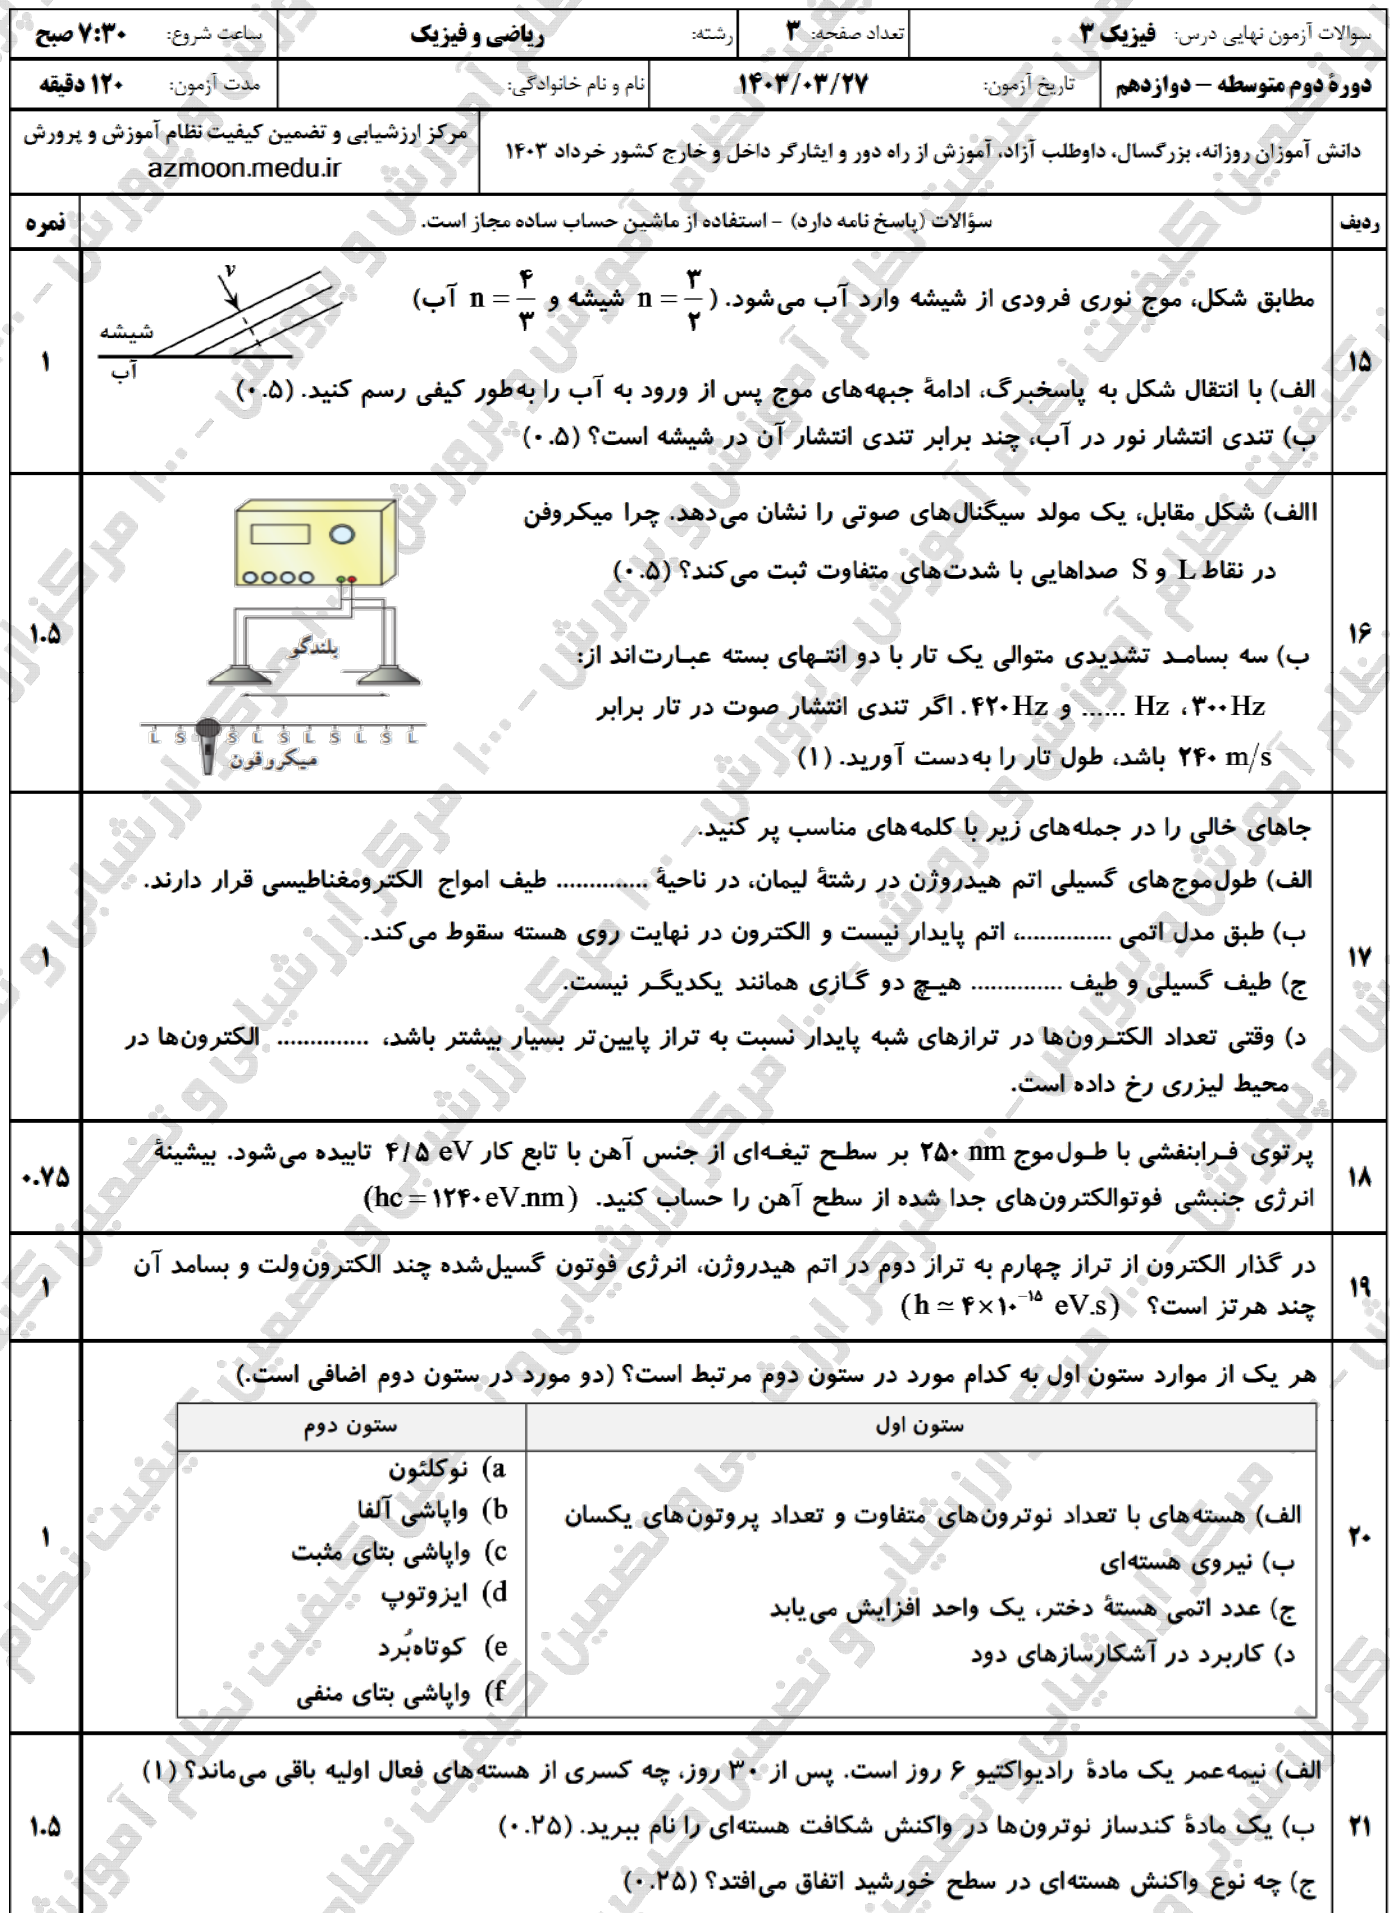 سوالات آزمون نهایی درس: فیزیک ۳
تعداد صفحه: ۳
رشته: ریاضی و فیزیک
ساعت شروع: ۷:۳۰ صبح
دورهٔ دوم متوسطه – دوازدهم
تاریخ آزمون: ۱۴۰۳/۰۳/۲۷
نام و نام خانوادگی:
مدت آزمون: ۱۲۰ دقیقه
دانش آموزان روزانه، بزرگسال، داوطلب آزاد، آموزش از راه دور و ایثارگر داخل و خارج کشور خرداد ۱۴۰۳
مرکز ارزشیابی و تضمین کیفیت نظام آموزش و پرورش
azmoon.medu.ir
ردیف
سؤالات (پاسخ نامه دارد) – استفاده از ماشین حساب ساده مجاز است.
نمره
۱۵
مطابق شکل، موج نوری فرودی از شیشه وارد آب می‌شود. (n = ۳/۲ شیشه و n = ۴/۳ آب)
الف) با انتقال شکل به پاسخبرگ، ادامهٔ جبهه‌های موج پس از ورود به آب را به‌طور کیفی رسم کنید. (۰.۵)
ب) تندی انتشار نور در آب، چند برابر تندی انتشار آن در شیشه است؟ (۰.۵)
v
شیشه
آب
۱
۱۶
االف) شکل مقابل، یک مولد سیگنال‌های صوتی را نشان می‌دهد. چرا میکروفن
در نقاط L و S صداهایی با شدت‌های متفاوت ثبت می‌کند؟ (۰.۵)
ب) سه بسامد تشدیدی متوالی یک تار با دو انتهای بسته عبارت‌اند از:
۳۰۰ Hz، ...... Hz و ۴۲۰ Hz. اگر تندی انتشار صوت در تار برابر
۲۴۰ m/s باشد، طول تار را به‌دست آورید. (۱)
بلندگو
L S S L S L S L S L
میکروفون
۱.۵
۱۷
جاهای خالی را در جمله‌های زیر با کلمه‌های مناسب پر کنید.
الف) طول‌موج‌های گسیلی اتم هیدروژن در رشتهٔ لیمان، در ناحیهٔ .............. طیف امواج الکترومغناطیسی قرار دارند.
ب) طبق مدل اتمی ..............، اتم پایدار نیست و الکترون در نهایت روی هسته سقوط می‌کند.
ج) طیف گسیلی و طیف .............. هیچ دو گازی همانند یکدیگر نیست.
د) وقتی تعداد الکترون‌ها در ترازهای شبه پایدار نسبت به تراز پایین‌تر بسیار بیشتر باشد، .............. الکترون‌ها در
محیط لیزری رخ داده است.
۱
۱۸
پرتوی فرابنفشی با طول‌موج ۲۵۰ nm بر سطح تیغه‌ای از جنس آهن با تابع کار ۴/۵ eV تابیده می‌شود. بیشینهٔ
انرژی جنبشی فوتوالکترون‌های جدا شده از سطح آهن را حساب کنید. (hc = ۱۲۴۰ eV.nm)
۰.۷۵
۱۹
در گذار الکترون از تراز چهارم به تراز دوم در اتم هیدروژن، انرژی فوتون گسیل‌شده چند الکترون‌ولت و بسامد آن
چند هرتز است؟ (h ≃ ۴×۱۰⁻¹⁵ eV.s)
۱
۲۰
هر یک از موارد ستون اول به کدام مورد در ستون دوم مرتبط است؟ (دو مورد در ستون دوم اضافی است.)
ستون اول
ستون دوم
الف) هسته‌های با تعداد نوترون‌های متفاوت و تعداد پروتون‌های یکسان
ب) نیروی هسته‌ای
ج) عدد اتمی هستهٔ دختر، یک واحد افزایش می‌یابد
د) کاربرد در آشکارسازهای دود
a) نوکلئون
b) واپاشی آلفا
c) واپاشی بتای مثبت
d) ایزوتوپ
e) کوتاه‌بُرد
f) واپاشی بتای منفی
۱
۲۱
الف) نیمه‌عمر یک مادهٔ رادیواکتیو ۶ روز است. پس از ۳۰ روز، چه کسری از هسته‌های فعال اولیه باقی می‌ماند؟ (۱)
ب) یک مادهٔ کندساز نوترون‌ها در واکنش شکافت هسته‌ای را نام ببرید. (۰.۲۵)
ج) چه نوع واکنش هسته‌ای در سطح خورشید اتفاق می‌افتد؟ (۰.۲۵)
۱.۵